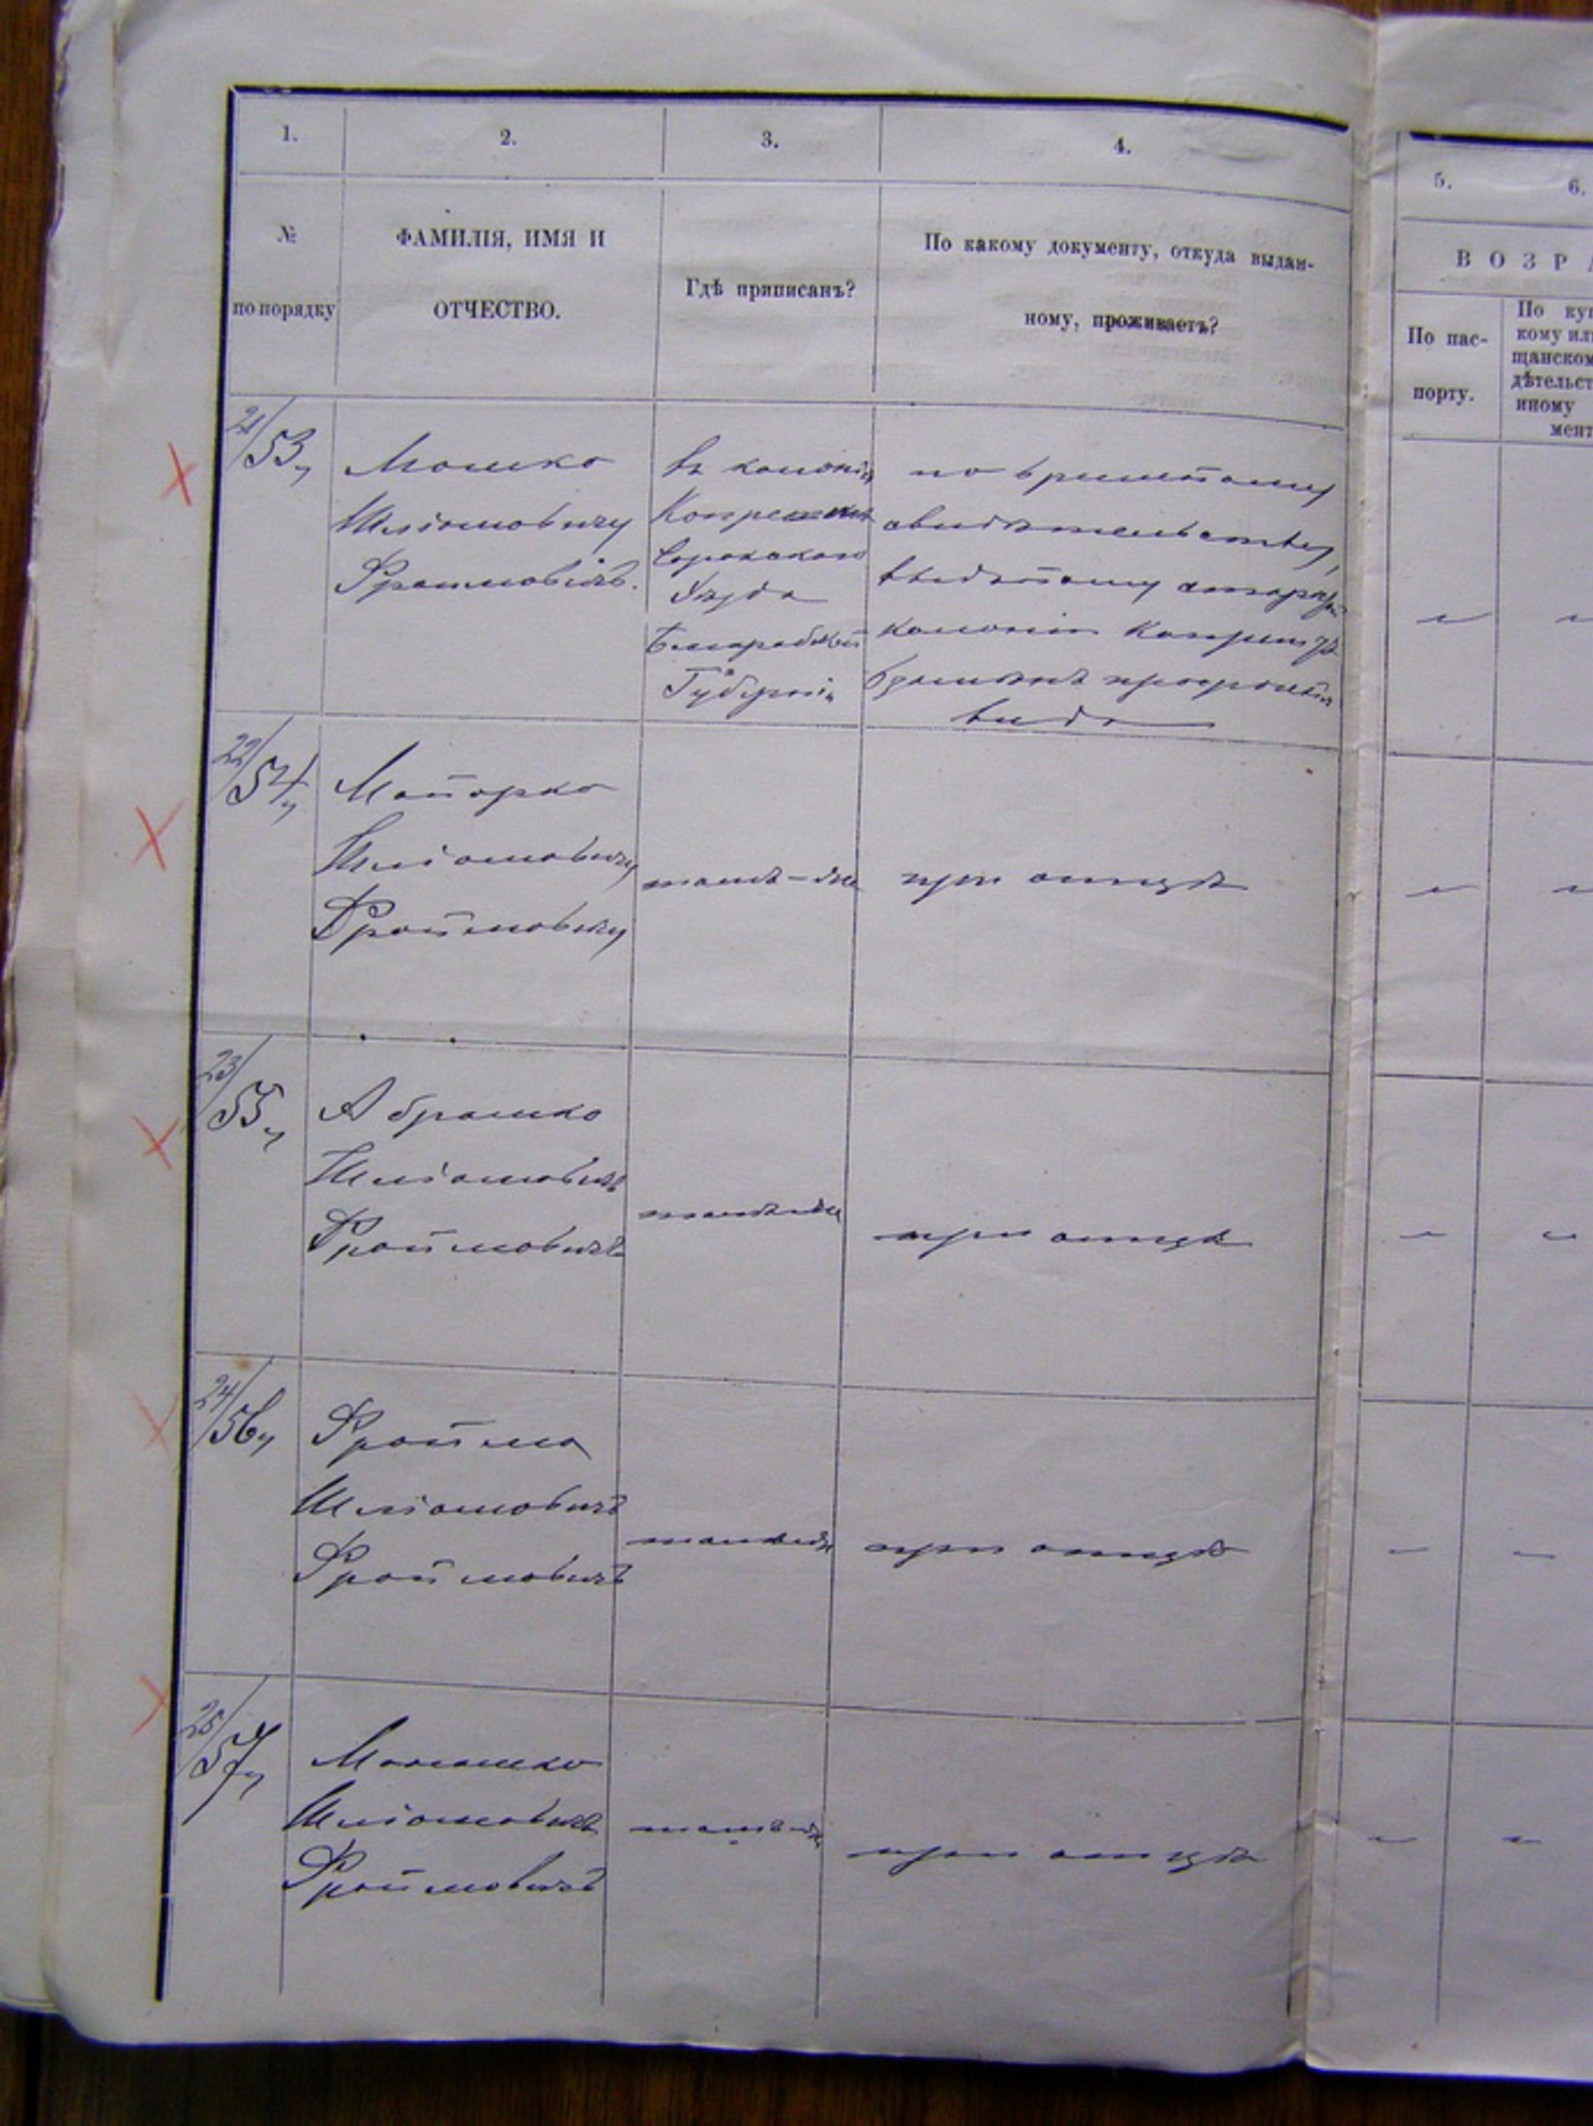 1.
2.
3.
4.
5.
6.
№
по порядку
ФАМИЛІЯ, ИМЯ И
ОТЧЕСТВО.
Гдѣ приписанъ?
По какому документу, откуда выдан-
ному, проживаетъ?
ВОЗРА
По пас-
порту.
По куп
кому или
щанском
дѣтельст
иному
мент
21/53
Мошко
Шліомовичу
Фроимовичъ.
въ колоніи
Сорокскаго
Уѣзда
Бессарабской
Губерніи
по
свидѣтельству,
выданному
колоніи
вида
22/54
Майорко
Шліомовичу
Фроймовичу
тамъ-же
при отцѣ
23/55
Абрамко
Шліомовичъ
Фроймовичъ
тамъ же
при отцѣ
24/56
Фройма
Шліомовичъ
Фроймовичъ
тамъ же
при отцѣ
25/57
Шліомовичъ
Фроймовичъ
тамъ же
при отцѣ